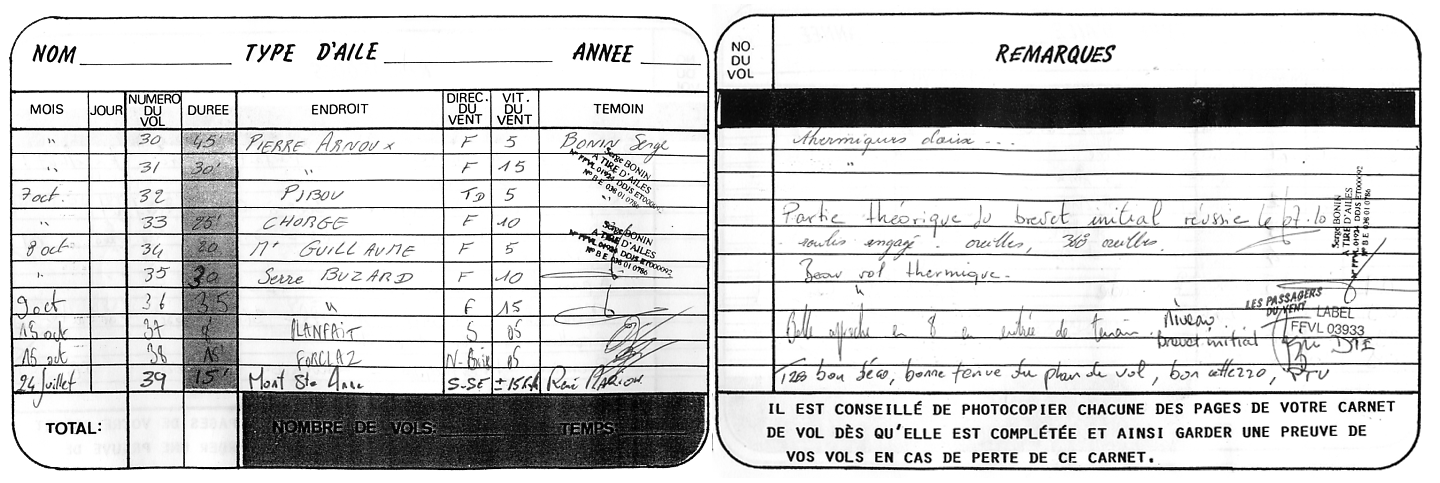 NOM TYPE D'AILE ANNEE
MOIS JOUR NUMERO DU VOL DUREE ENDROIT DIREC. DU VENT VIT. DU VENT TEMOIN
" 30 45' PIERRE ARNOUX F 5 BONIN Serge
" 31 30' " F 15
7 oct. 32 PIBOU TD 5 "
" 33 25' CHORGE F 10
8 oct 34 20 Mt GUILLAUME F 5
" 35 30 Serre BUZARD F 10
9 oct 36 35 " F 15
15 oct 37 8' PLANFAIT S 05
15 oct 38 15' FORCLAZ N- 05
24 Juillet 39 15' Mont Ste Anne S-SE ±15 René MARION
Serge BONIN
A TIRE D'AILES
N° FFVL 01924 DDJS ET000092
N° B E 038 01 0786
Serge BONIN
A TIRE D'AILES
N° FFVL 01924 DDJS ET000092
N° B E 038 01 0786
TOTAL: NOMBRE DE VOLS: TEMPS:
NO. DU VOL REMARQUES
thermiques ...
"
Partie théorique du brevet initial réussie le 07.10
engagé. oreilles, 360 oreilles.
Beau vol thermique.
"
Belle approche en 8 en entrée de terrain. Niveau
Brevet initial
Serge BONIN
A TIRE D'AILES
N° FFVL 01924 DDJS ET000092
N° B E 038 01 0786
LES PASSAGERS
DU VENT
LABEL
FFVL 03933
Très bon déco, bonne tenue du plan de vol, bon atterro,
IL EST CONSEILLÉ DE PHOTOCOPIER CHACUNE DES PAGES DE VOTRE CARNET
DE VOL DÈS QU'ELLE EST COMPLÉTÉE ET AINSI GARDER UNE PREUVE DE
VOS VOLS EN CAS DE PERTE DE CE CARNET.